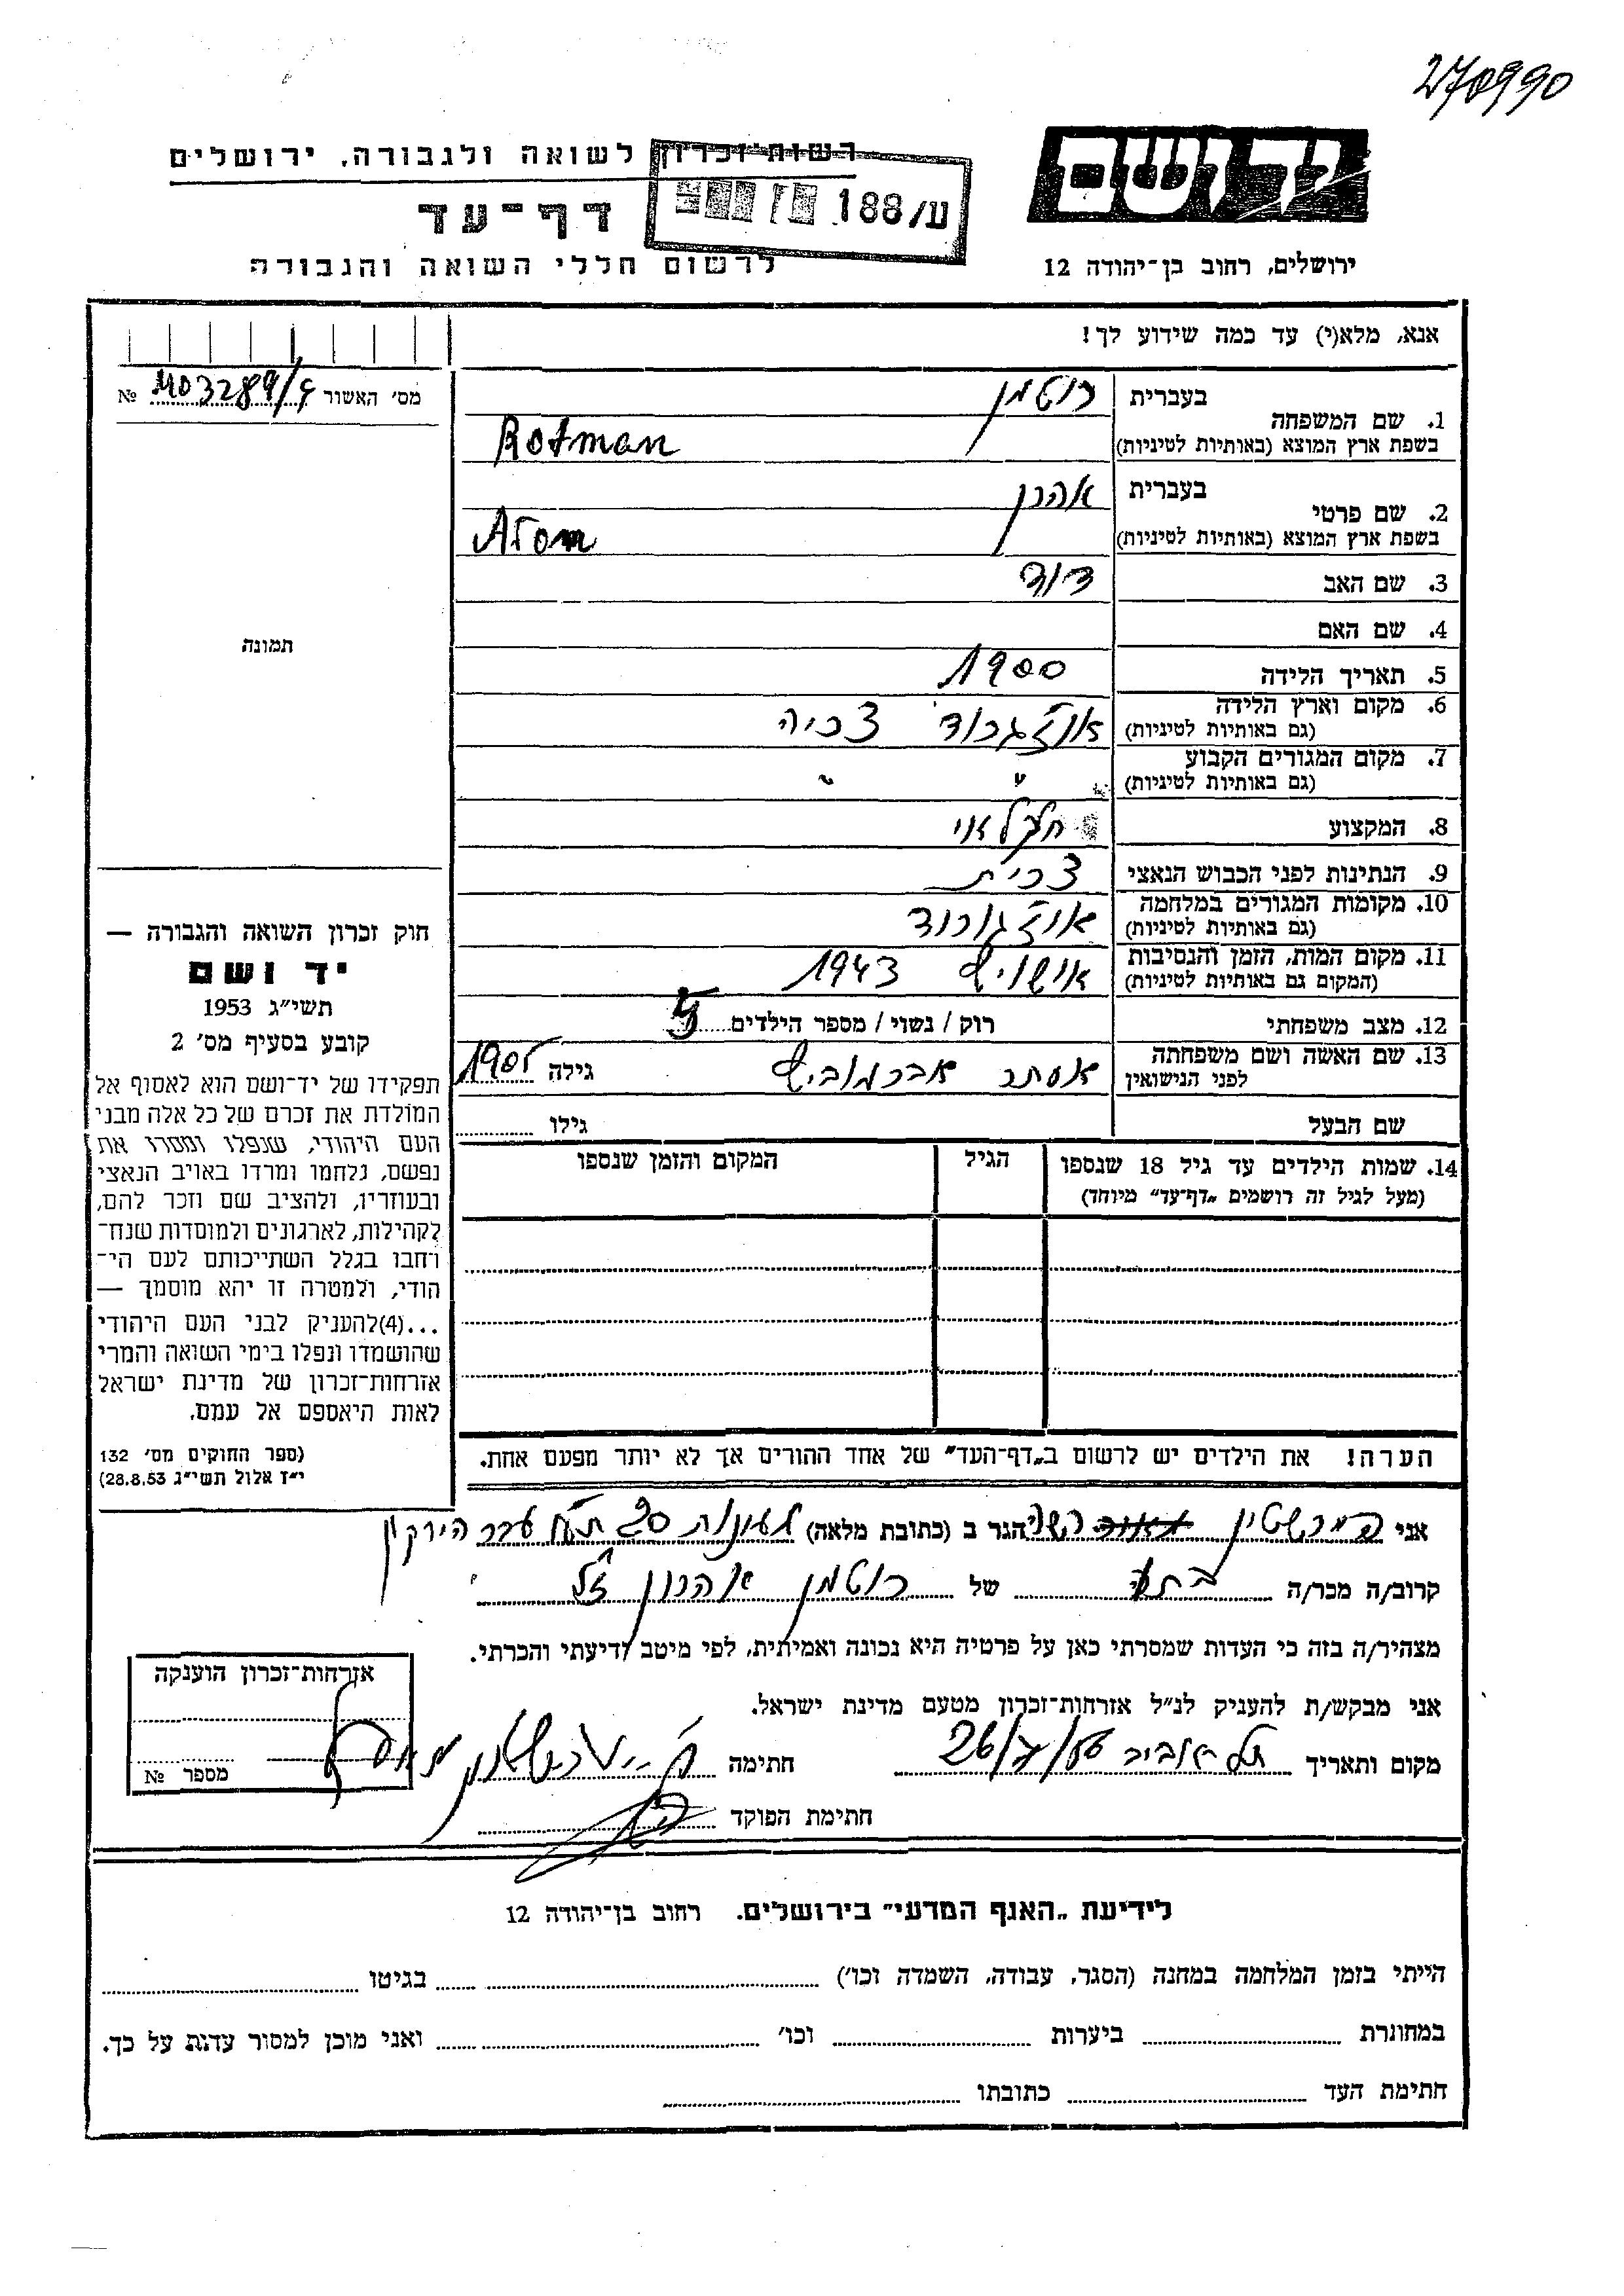 270990
יד ושם
ירושלים, רחוב בן־יהודה 12
רשות־זכרון לשואה ולגבורה, ירושלים
דף־עד
לרשום חללי השואה והגבורה
ע/188
אנא, מלא(י) עד כמה שידוע לך!
מס׳ האשור № 403289/4
1. שם המשפחה
בעברית רוטמן
בשפת ארץ המוצא (באותיות לטיניות) Rotman
2. שם פרטי
בעברית אהרן
בשפת ארץ המוצא (באותיות לטיניות) Aron
3. שם האב דוד
4. שם האם
5. תאריך הלידה 1900
6. מקום וארץ הלידה אוז׳גרוד צ׳כיה
(גם באותיות לטיניות)
7. מקום המגורים הקבוע " "
(גם באותיות לטיניות)
8. המקצוע חקלאי
9. הנתינות לפני הכבוש הנאצי צ׳כית
10. מקומות המגורים במלחמה אוז׳גורוד
(גם באותיות לטיניות)
11. מקום המות, הזמן והנסיבות אושויץ 1943
(המקום גם באותיות לטיניות)
12. מצב משפחתי רוק / נשוי / מספר הילדים 5
13. שם האשה ושם משפחתה אסתר אברמוביץ גילה 1905
לפני הנישואין
שם הבעל גילו
14. שמות הילדים עד גיל 18 שנספו הגיל המקום והזמן שנספו
(מעל לגיל זה רושמים „דף־עד" מיוחד)
הערה! את הילדים יש לרשום ב„דף־העד" של אחד ההורים אך לא יותר מפעם אחת.
תמונה
חוק זכרון השואה והגבורה —
יד ושם
תשי״ג 1953
קובע בסעיף מס׳ 2
תפקידו של יד־ושם הוא לאסוף אל
המולדת את זכרם של כל אלה מבני
העם היהודי, שנפלו ומסרו את
נפשם, נלחמו ומרדו באויב הנאצי
ובעוזריו, ולהציב שם וזכר להם,
לקהילות, לארגונים ולמוסדות שנח־
רחבו בגלל השתייכותם לעם הי־
הודי, ולמטרה זו יהא מוסמך —
...(4)להעניק לבני העם היהודי
שהושמדו ונפלו בימי השואה והמרי
אזרחות־זכרון של מדינת ישראל
לאות היאספם אל עמם.
(ספר החוקים מס׳ 132
י״ז אלול תשי״ג 28.8.53)
אני הגר ב (כתובת מלאה) 20 עבר הירקון
קרוב/ה מכר/ה של רוטמן אהרון ז״ל
מצהיר/ה בזה כי העדות שמסרתי כאן על פרטיה היא נכונה ואמיתית, לפי מיטב ידיעתי והכרתי.
אני מבקש/ת להעניק לנ״ל אזרחות־זכרון מטעם מדינת ישראל.
מקום ותאריך תל אביב חתימה
חתימת הפוקד
אזרחות־זכרון הוענקה
מספר №
לידיעת „האנף המדעי" בירושלים. רחוב בן־יהודה 12
הייתי בזמן המלחמה במחנה (הסגר, עבודה, השמדה וכו׳) בגיטו
במחתרת ביערות וכו׳ ואני מוכן למסור עדות על כך.
חתימת העד כתובתו